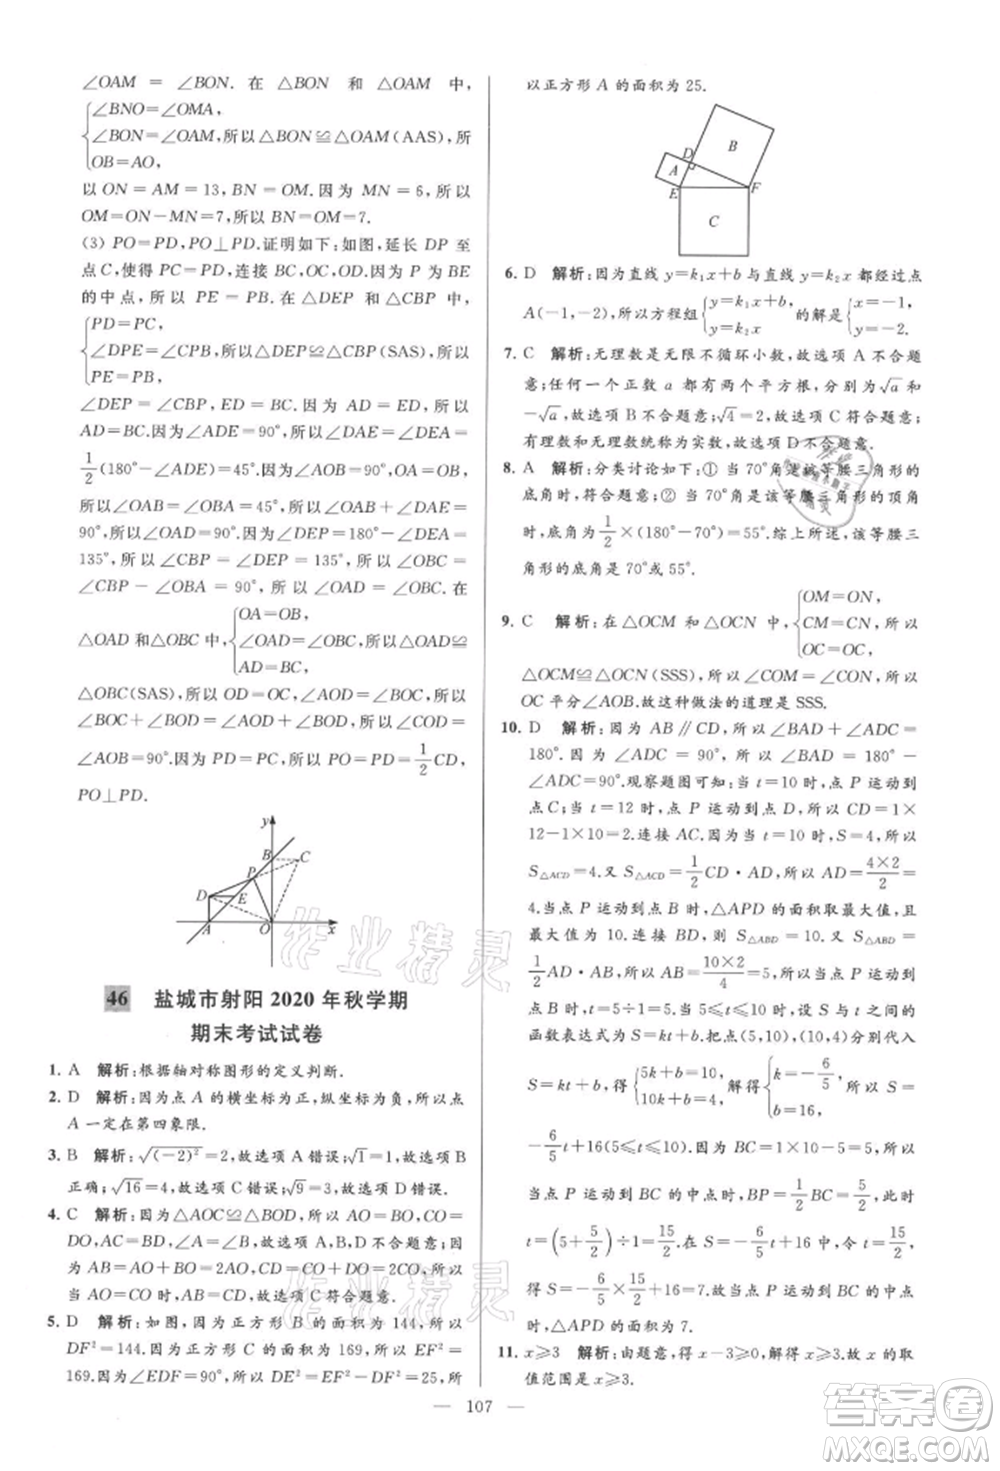 ∠OAM=∠BON.在△BON和△OMA中,
∠BNO=∠OMA,
∠BON=∠OAM,所以△BON≌△OMA(AAS),
OB=AO,
以ON=AM=13,BN=OM.因为MN=6,所以
OM=ON-MN=7,所以BN=OM=7.
(3) PO=PD,PO⊥PD.证明如下:如图,延长DP至
点C,使得PC=PD,连接BC,OC.因为P为BE
的中点,所以PE=PB.在△DEP和△CBP中,
PD=PC,
∠DPE=∠CPB,所以△DEP≌△CBP(SAS),所以
PE=PB,
∠DEP=∠CBP,ED=BC.因为AD=ED,所以
AD=BC.因为∠ADE=90°,所以∠DAE=∠DEA=
1/2(180°-∠ADE)=45°.因为∠AOB=90°,OA=OB,所
以∠OAB=∠OBA=45°,所以∠OAD=∠OAB+∠DAE=
90°.因为∠DEP=180°-∠DEA=
135°,所以∠CBP=∠DEP=135°,所以∠OBC=
∠CBP-∠OBA=90°,所以∠OAD=∠OBC.在
△OAD和△OBC中,
OA=OB,
∠OAD=∠OBC,所以△OAD≌
AD=BC,
△OBC(SAS),所以OD=OC,∠AOD=∠BOC.因
为∠AOD+∠BOD=90°,所以∠COD=∠BOC+
∠BOD=90°.因为PD=PC,所以PO=PD=1/2CD,
PO⊥PD.
y
B
C
P
D
E
A
O
x
46 盐城市射阳2020年秋学期
期末考试试卷
1. A 解析:根据轴对称图形的定义判断.
2. D 解析:因为点A的横坐标为正,纵坐标为负,所以点
A一定在第四象限.
3. B 解析:√(-2)²=2,故选项A错误;√1=1,故选项B
正确;√16=4,故选项C错误;√9=3,故选项D错误.
4. C 解析:因为△AOC≌△BOD,所以AO=BO,CO=
DO,∠A=∠B,故选项A、B、D不合题意;因为
AB=AO+BO=2AO,CD=CO+DO=2CO,所以
当AO=CO时,AB=CD,故选项C符合题意.
5. D 解析:如图,因为正方形B的面积为144,所以
DF²=144.因为正方形C的面积为169,所以EF²=
169.因为∠EDF=90°,所以DE²=EF²-DF²=25,所
以正方形A的面积为25.
B
D
A
E
F
C
6. D 解析:因为直线y=k₁x+b与直线y=k₂x都经过点
A(-1,-2),所以方程组
y=k₁x+b,
y=k₂x
的解是
x=-1,
y=-2.
7. C 解析:无理数是无限不循环小数,故选项A不合题
意;任何一个正数a都有两个平方根,分别为√a和
-√a,故选项B不合题意;√4=2,故选项C符合题意;
有理数和无理数统称为实数,故选项D不合题意.
8. A 解析:分类讨论如下:① 当70°角是该等腰三角形的
底角时,符合题意;② 当70°角是该等腰三角形的顶角
时,底角为1/2×(180°-70°)=55°.综上所述,该等腰三
角形的底角是70°或55°.
9. C 解析:在△OCM和△OCN中,
OM=ON,
CM=CN,所以
OC=OC,
△OCM≌△OCN(SSS),所以∠COM=∠CON,所以
OC平分∠AOB.故这种做法的道理是SSS.
10. D 解析:因为AB∥CD,所以∠BAD+∠ADC=
180°.因为∠ADC=90°,所以∠BAD=180°-
∠ADC=90°.观察题图可知:当t=10时,点P运动到
点C;当t=12时,点P运动到点D,所以CD=1×
12-1×10=2.连接AC.因为t=10时,S=4,所以
S△ACD=4.因为S△ACD=1/2CD·AD,所以AD=4×2/2=
4.当点P运动到点B时,△APD的面积取最大值,且
最大值为10.连接BD,则S△ABD=10.因为S△ABD=
1/2AD·AB,所以AB=10×2/4=5.当5≤t≤10时,设S
的函数表达式为S=kt+b.将点(5,10),(10,4)分别代入
S=kt+b,得
5k+b=10,
10k+b=4,
解得
k=-6/5,
b=16,
所以S=
-6/5t+16(5≤t≤10).因为BC=1×10-5=5,所以
当点P运动到BC的中点时,BP=1/2BC=5/2,此时
t=(5+5/2)÷1=15/2.在S=-6/5t+16中,令t=15/2,
得S=-6/5×15/2+16=7.故当点P运动到BC的中点
时,△APD的面积为7.
11. x≥3 解析:由题意,得x-3≥0,解得x≥3,故x的取
值范围是x≥3.
— 107 —
作业精灵
作业精灵
答案圈
MXQE.COM